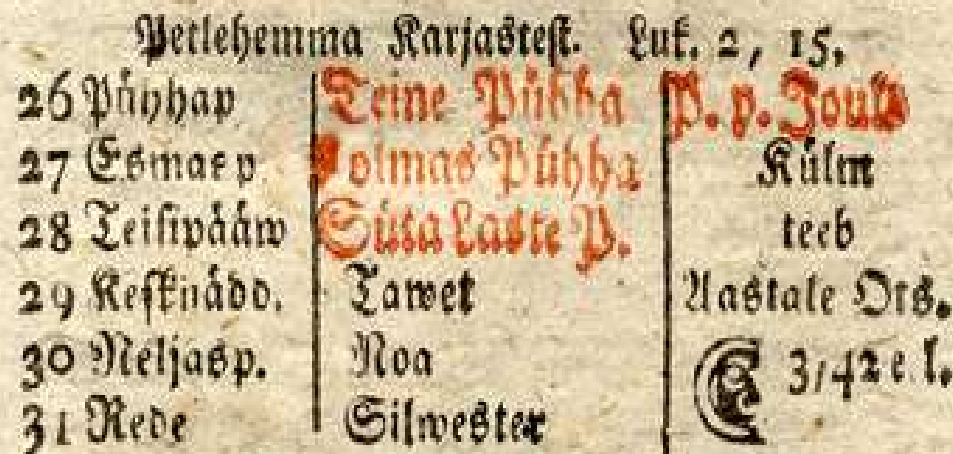 Petlehemma Karjastest. Luk. 2, 15.
26 Pühhap Teine Pühha P. p. Joulo
27 Esmasp Kolmas Pühha Külm
28 Teisipääw Süta Laste P. teeb
29 Kesknädd. Tawet Aastale Ots.
30 Neljasp. Noa 3,42 e. l.
31 Rede Silwester